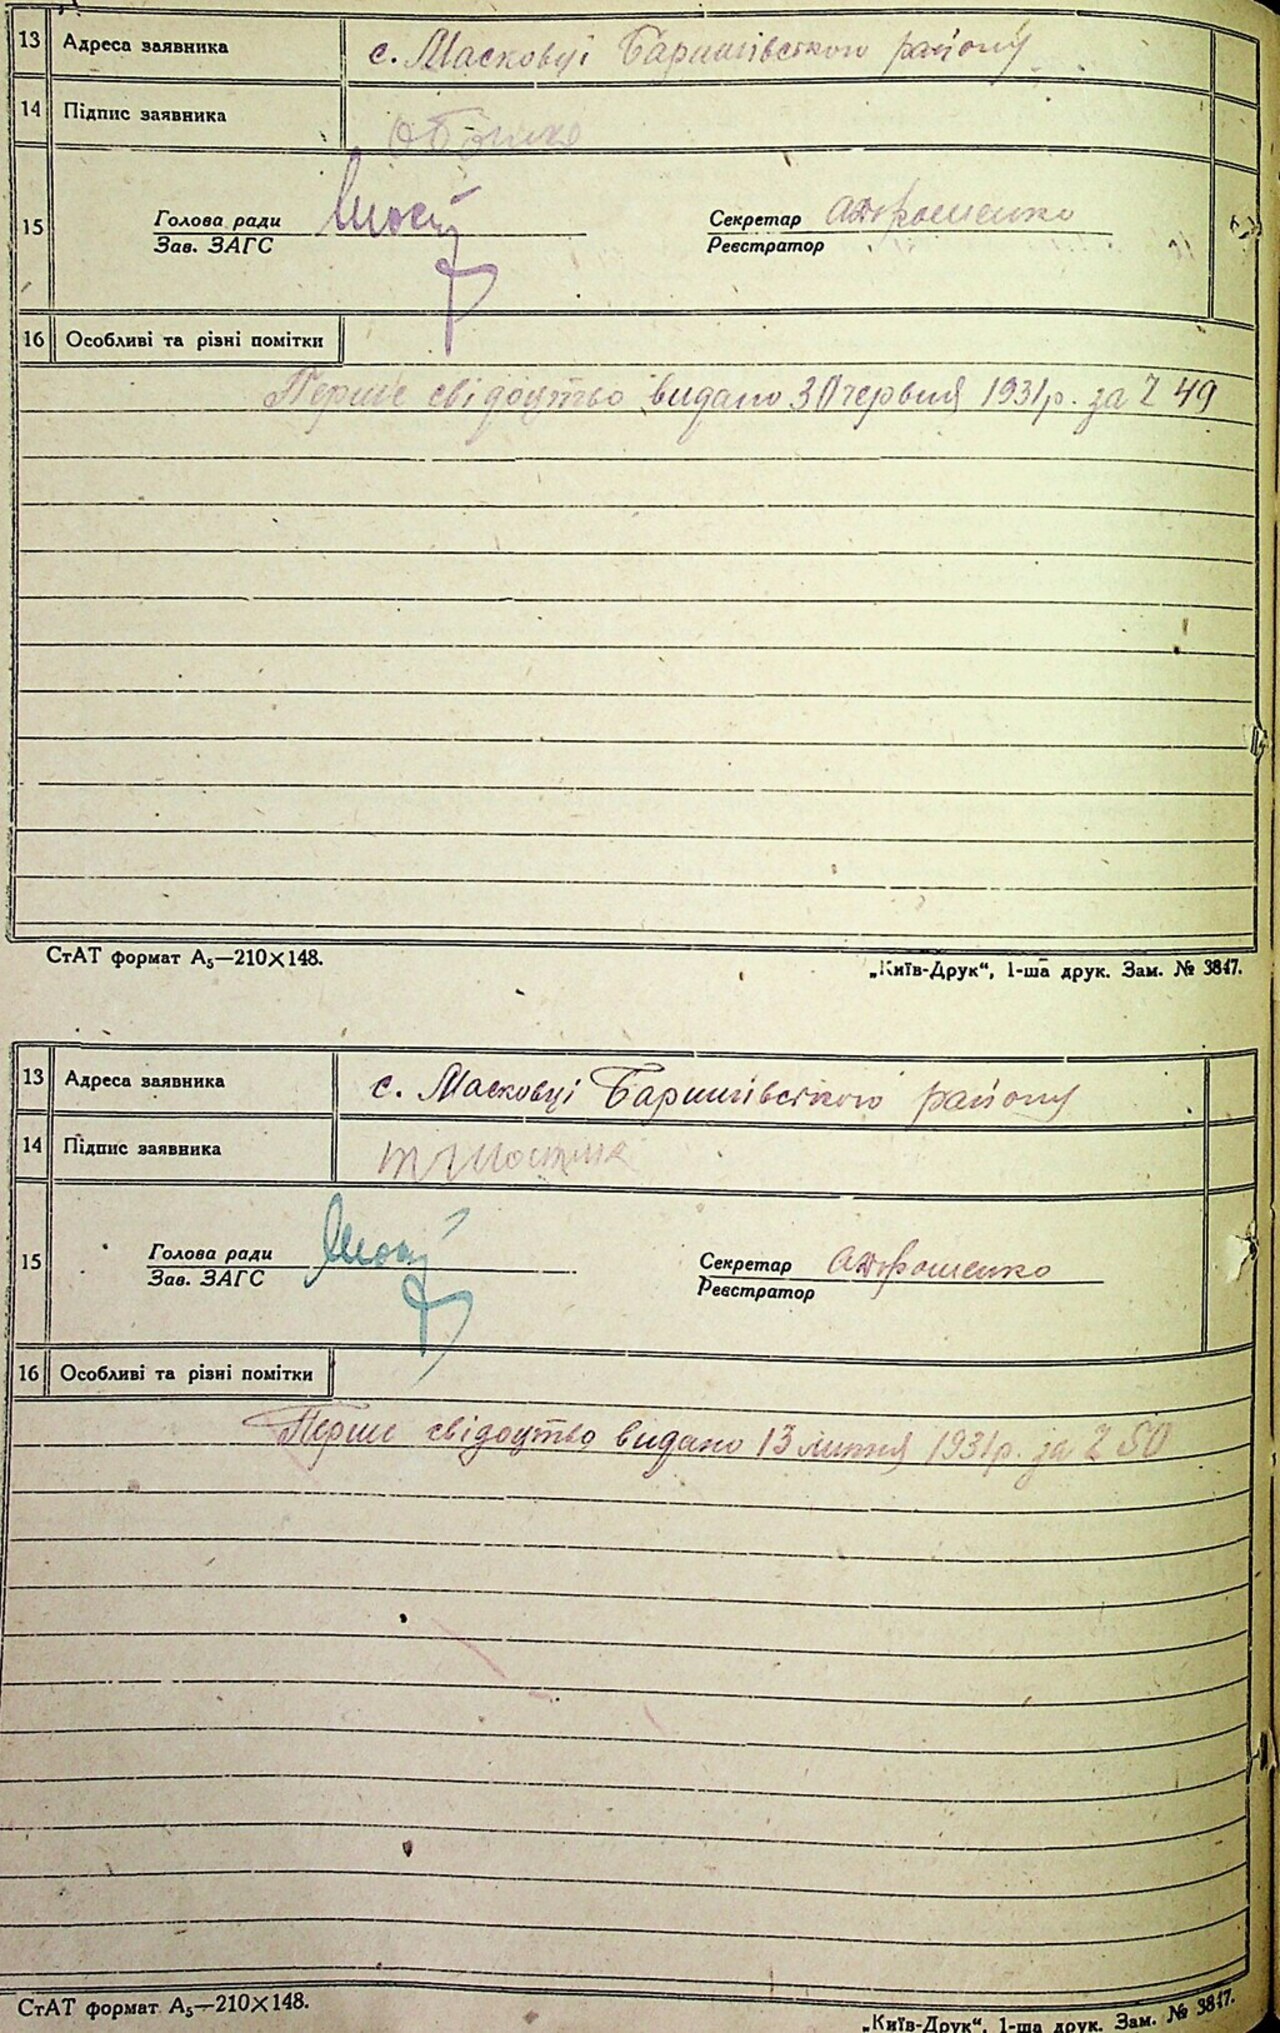 13 Адреса заявника с. Масковці Баришівського району
14 Підпис заявника
15 Голова ради Секретар
Зав. ЗАГС Реєстратор
16 Особливі та різні помітки
Перше свідоцтво видано 30 червня 1931 р. за № 49
СтАТ формат А₅—210×148.
„Київ-Друк“, 1-ша друк. Зам. № 3847.
13 Адреса заявника с. Масковці Баришівського району
14 Підпис заявника
15 Голова ради Секретар
Зав. ЗАГС Реєстратор
16 Особливі та різні помітки
Перше свідоцтво видано 13 липня 1931 р. за № 50
СтАТ формат А₅—210×148.
„Київ-Друк“, 1-ша друк. Зам. № 3847.